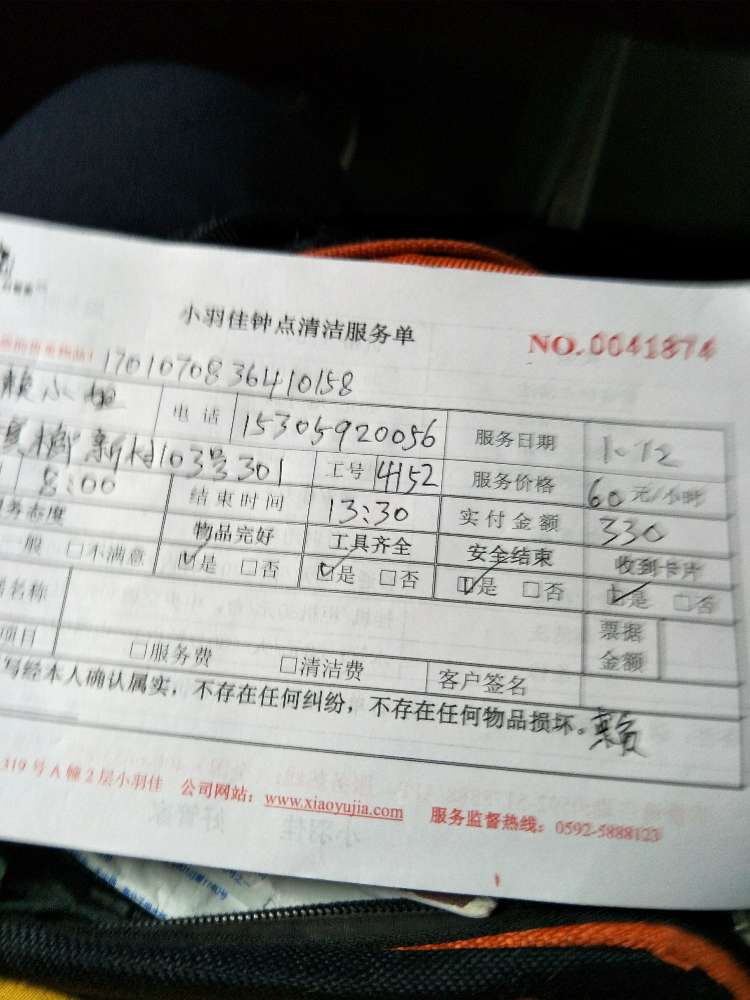 小羽佳钟点清洁服务单
NO.0041874
1701070836410158
赖小姐 电话 15305920056 服务日期 1.12
新村103号301 工号 4152 服务价格 60元/小时
8:00 结束时间 13:30 实付金额 330
务态度 物品完好 工具齐全 安全结束 收到卡片
一般 □不满意 ☑是 □否 ☑是 □否 ☑是 □否 ☑是 □否
名称 票据金额
项目 □服务费 □清洁费 客户签名
写经本人确认属实，不存在任何纠纷，不存在任何物品损坏。赖
319号A幢2层小羽佳 公司网站：www.xiaoyujia.com 服务监督热线：0592-5888123